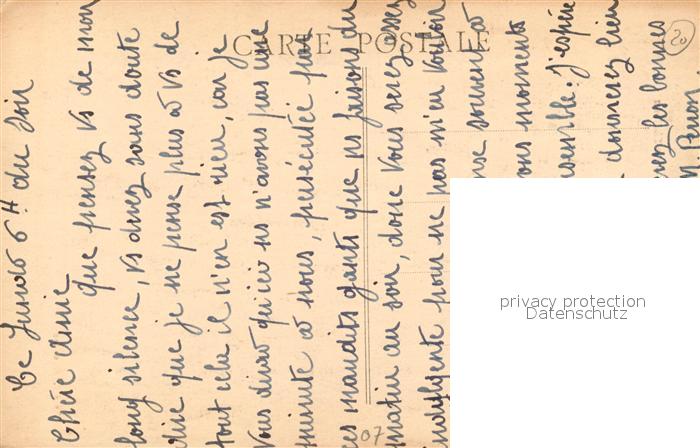 CARTE POSTALE
20
Ce Lundi 6H du soir
Chère Amie
que pensez vs de mon
long silence, vs devez sans doute
dire que je ne pense plus à vs de
tout cela il n'en est rien, car je
vous dirai qu'ici ns n'avons pas une
minute à nous, persécutée par
ces maudits gants que ns faisons du
matin au soir, donc vous serez assez
indulgente pour ne pas m'en vouloir
souvent à
ons moments
ensemble. J'espère
donnerez bien
les bonnes
07
privacy protection
Datenschutz